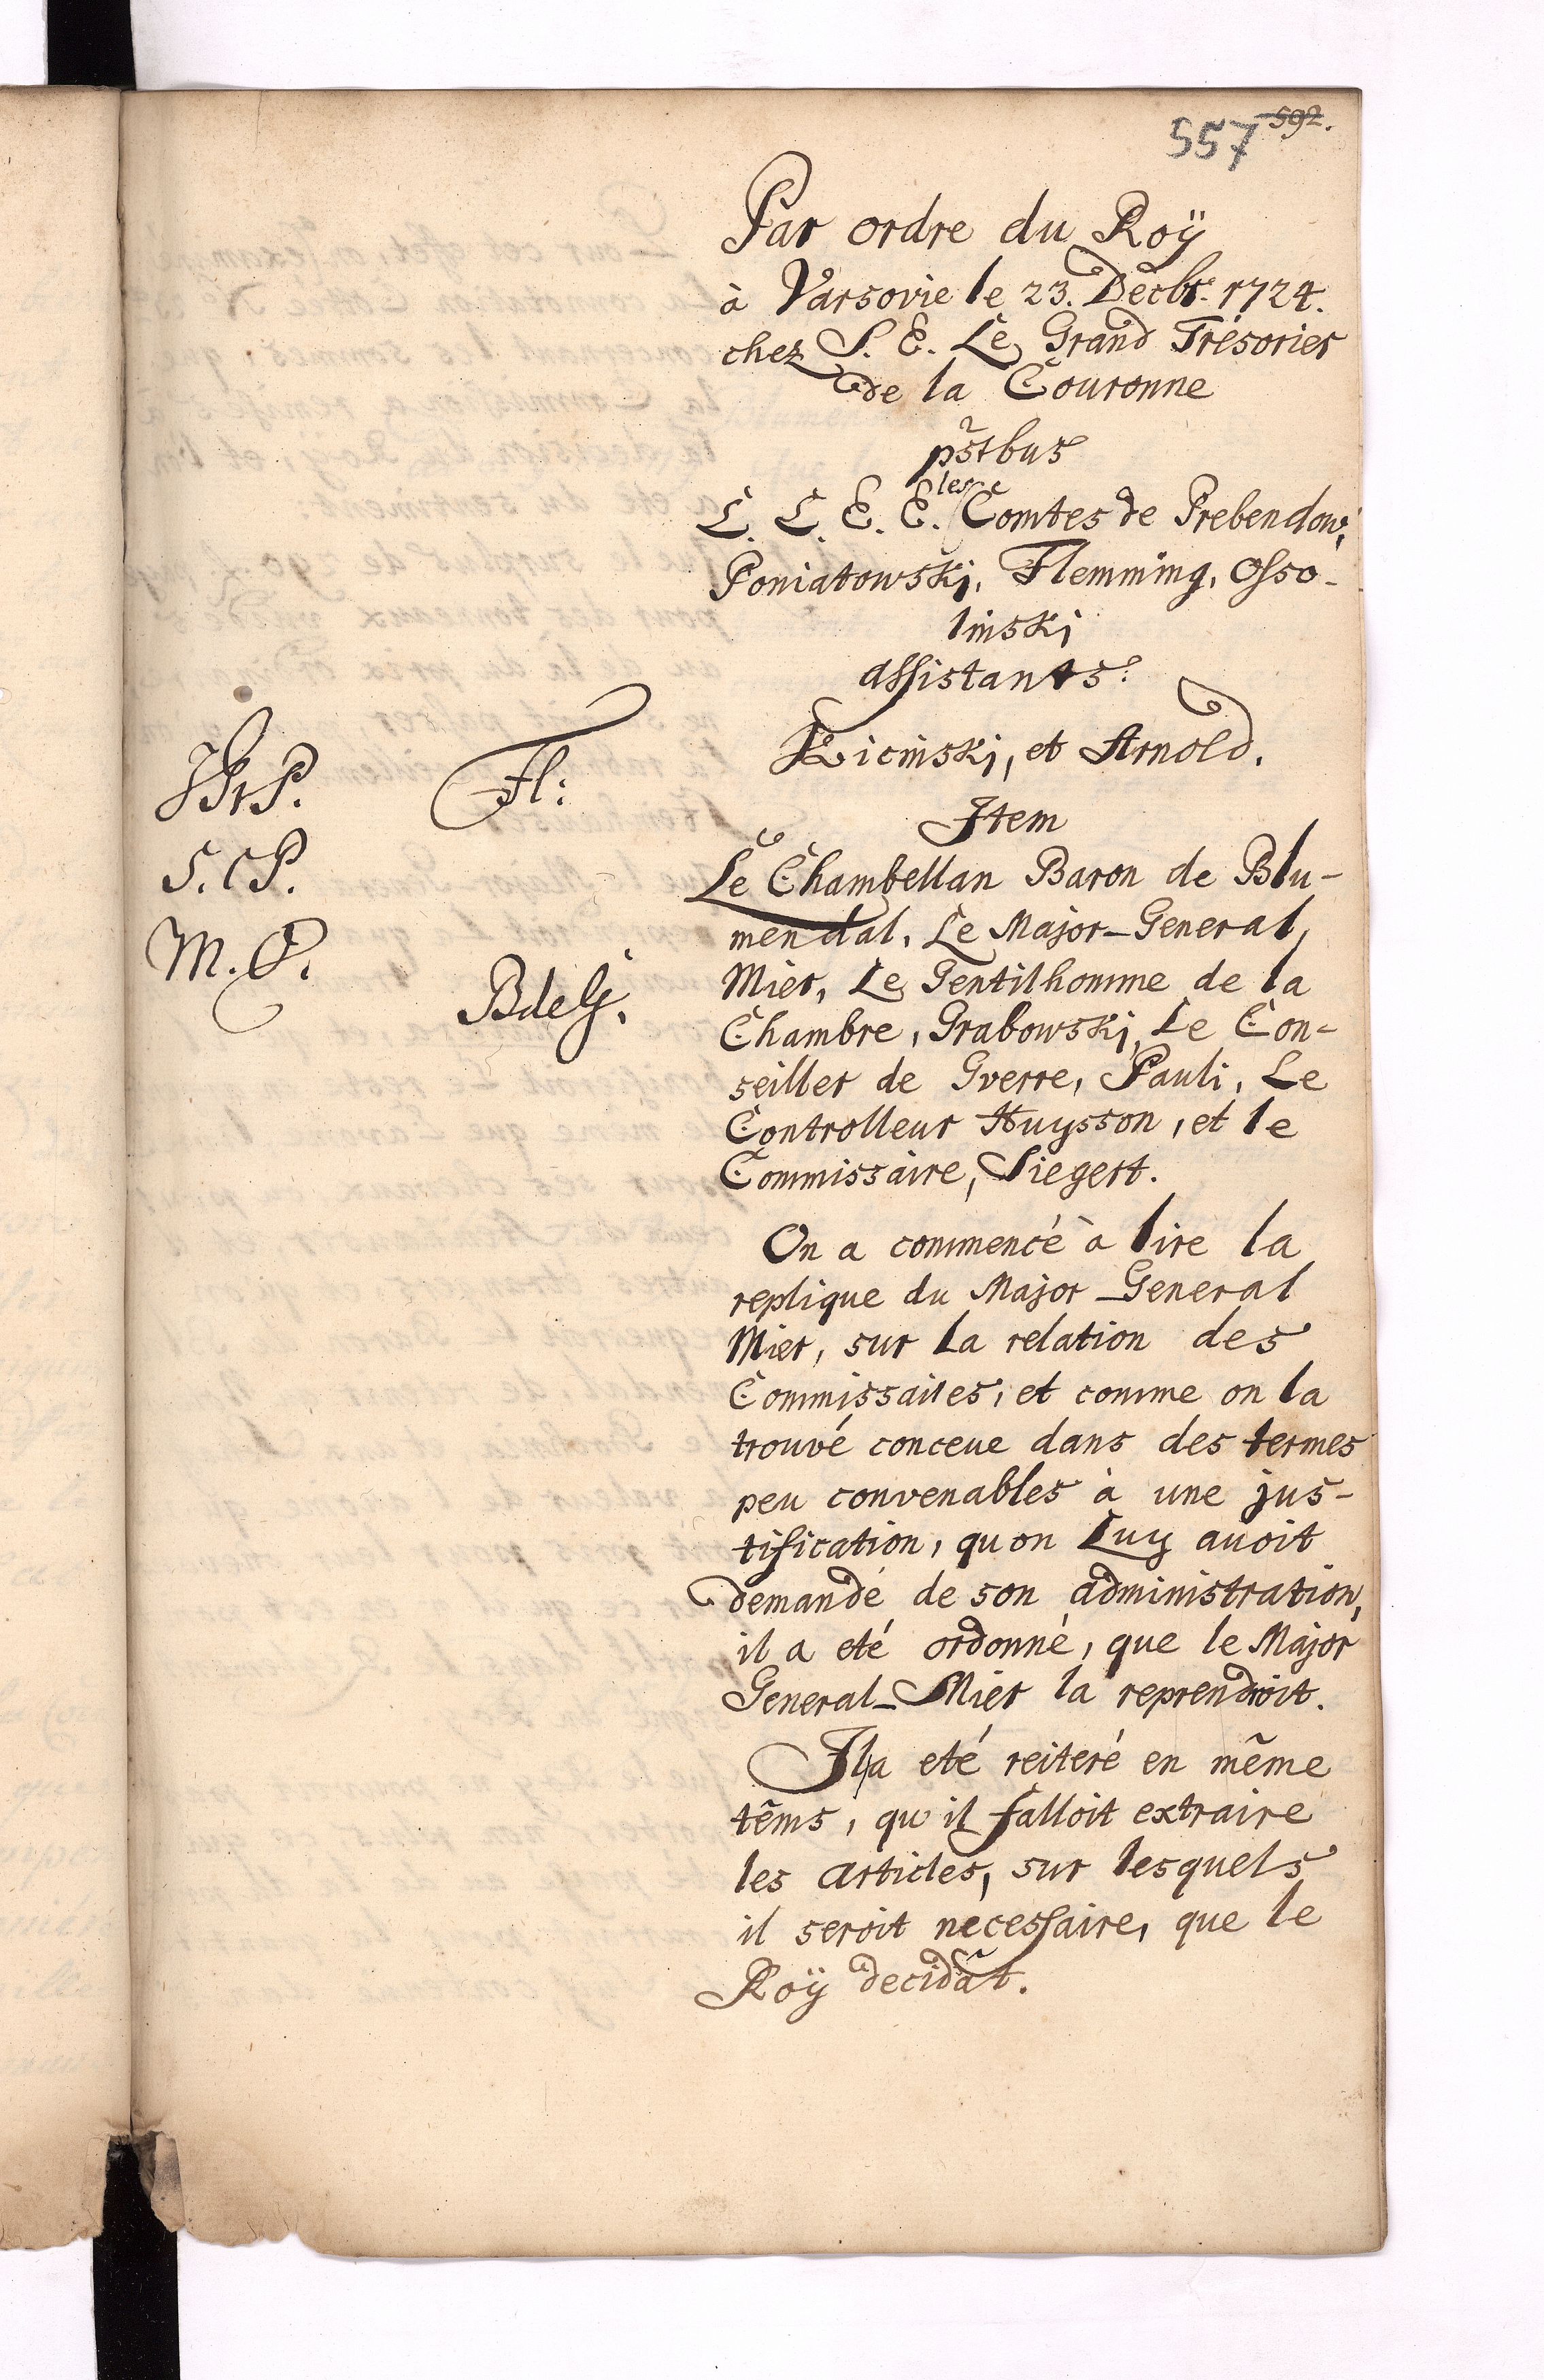 557 592.
Par ordre du Roÿ
à Varsovie le 23. Decbr. 1724.
chez S. E. Le Grand Trésorier
de la Couronne
pstbus
L. L. E. E. les Comtes de Prebendow,
Poniatowski, Flemming, Osso-
linski
assistants:
Kicinski, et Arnold.
Item
Le Chambellan Baron de Blu-
mendal, Le Major-General
Mier, Le Gentilhomme de la
Chambre, Grabowski, Le Con-
seiller de Gverre, Pauli, Le
Controlleur Huysson, et le
Commissaire, Siegert.
On a commencé à lire la
replique du Major-General
Mier, sur la relation des
Commissaires, et comme on la
trouvé conceue dans des termes
peu convenables à une jus-
tification, quon Luy avoit
demandé de son administration,
il a eté ordonné, que le Major
General-Mier la reprendroit.
Il a eté reiteré en même
têms, qu'il falloit extraire
les articles, sur lesquels
il seroit necessaire, que le
Roÿ decidât.
Fl:
S. C P.
M. O.
BdeG.